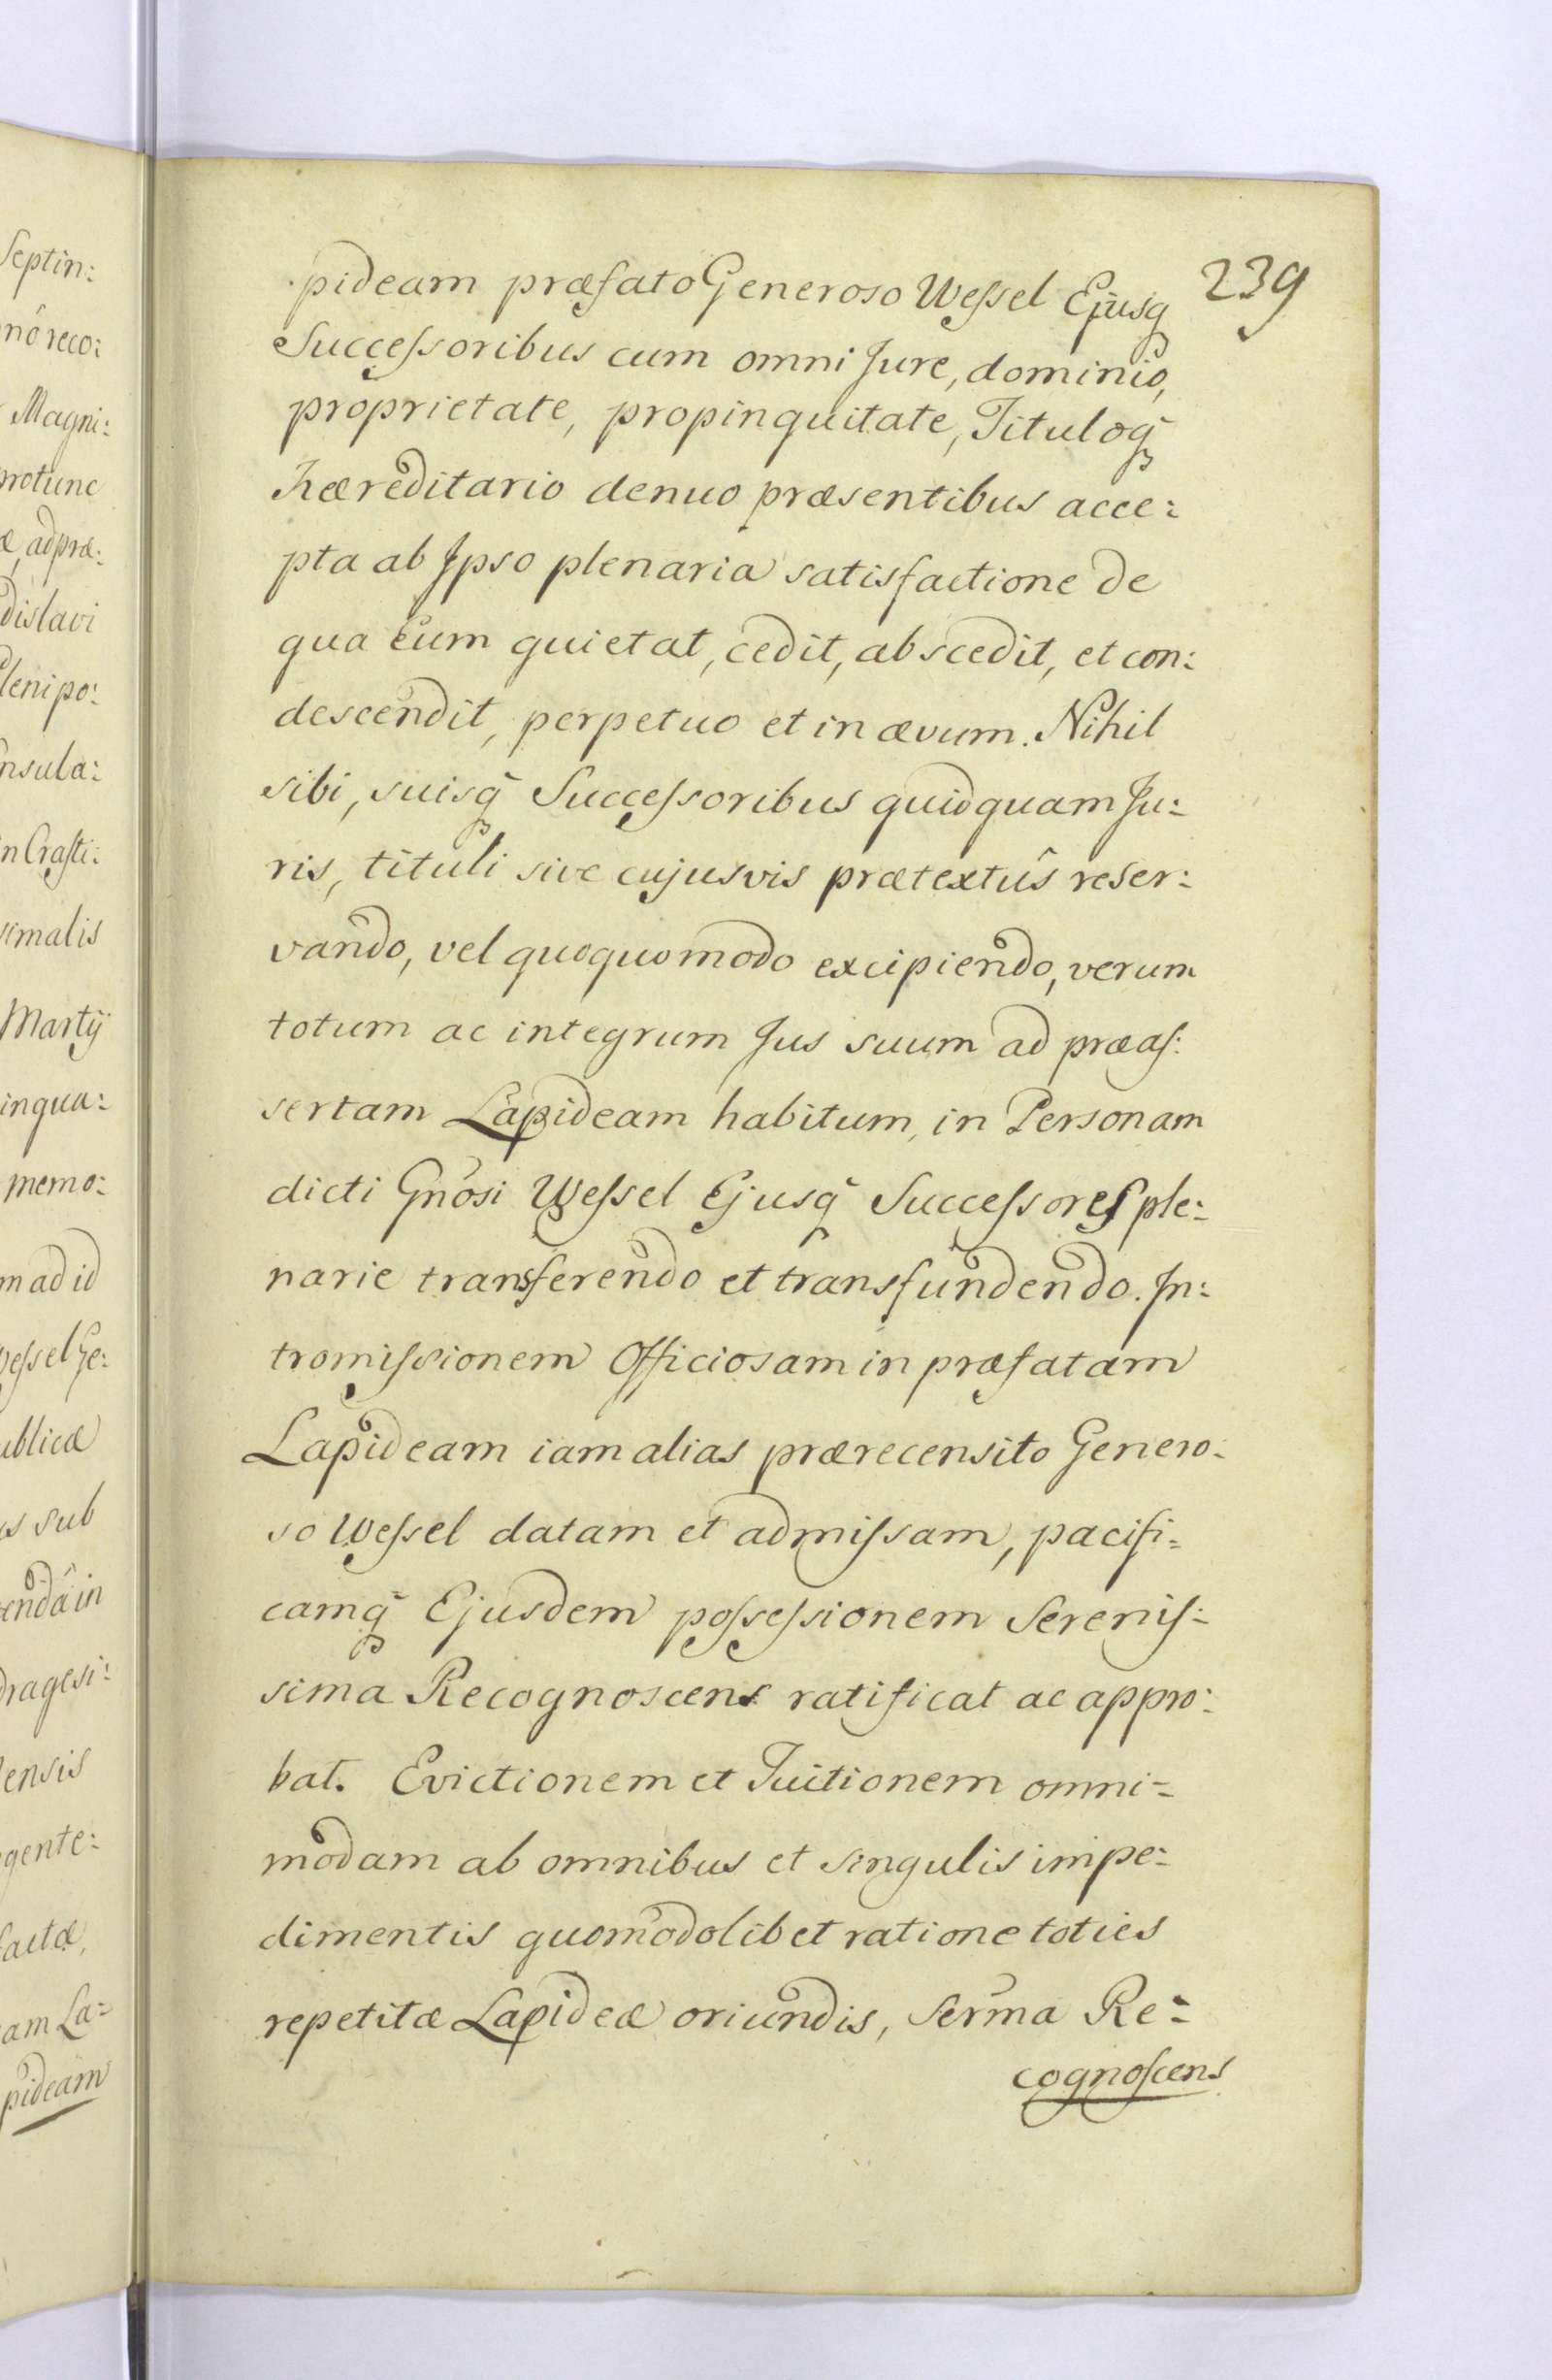 Septin:
nô reco:
Magni:
protunc
æ, ad præ:
dislavi
lenipo:
nsula:
in Crasti:
simalis
Martÿ
inqua:
memo:
m ad id
Wessel Ge:
ublicæ
us sub
endâ in
dragesi:
lensis
gente:
factæ,
am La:
pideam
239
pideam præfato Generoso Weſsel Ejusq̃
Succeſsoribus cum omni Jure, dominio,
proprietate, propinquitate, Tituloq̃
hæreditario denuo præsentibus acce:
pta ab Jpso plenaria satisfactione de
qua eum quietat, cedit, abscedit, et con:
descendit, perpetuo et in ævum. Nihil
sibi, suisq̃ Succeſsoribus quidquam Ju:
ris, tituli sive cujusvis prætextûs reser:
vando, vel quoquomodo excipiendo, verum
totum ac integrum Jus suum ad præaſ:
sertam Lapideam habitum, in Personam
dicti Gnõsi Weſsel Ejusq̃ Succeſsores ple:
narie transferendo et transfundendo. Jn:
tromiſsionem Officiosam in præfatam
Lapideam iam alias prærecensito Genero:
so Weſsel datam et admiſsam, pacifi:
camq̃ Ejusdem poſseſsionem Sereniſ:
sima Recognoscens ratificat ac appro:
bat. Evictionem et Tuitionem omni:
modam ab omnibus et singulis impe:
dimentis quomodolibet ratione toties
repetitæ Lapideæ oriundis, Serm̃a Re:
cognoſcens